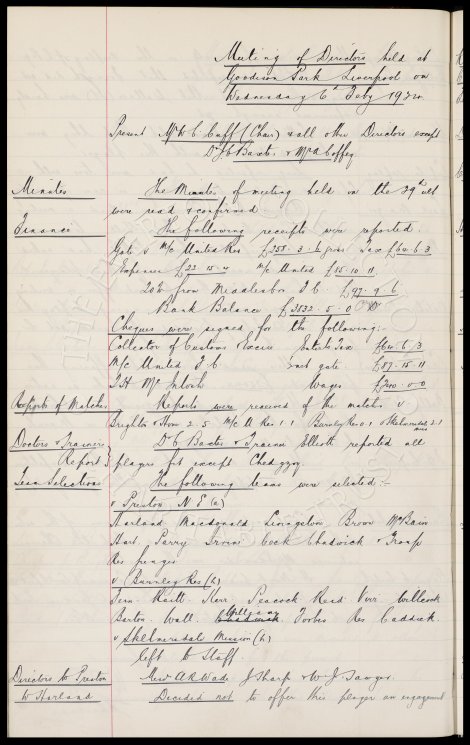 Meeting of Directors held at
Goodison Park Liverpool on
Wednesday 6th Feby 1924.
Present Mr W C Cuff (Chair) & all other Directors except
Dr J C Baxter & Mr A Coffey
Minutes The Minutes of meeting held on the 29th ult
were read & confirmed
Finance The following receipts were reported:
Gate v M/c United Res £255 . 3 . 6 gross Tax £60 . 6 . 3
Expenses £23 . 15 . 4 M/c United £15 . 10 . 11
20% from Middlesbro F.C. £97 . 9 . 6
Bank Balance £3132 . 5 . 0 OD
Cheques were signed for the following:-
Collector of Customs & Excise Entertt Tax £60 . 6 . 3
M/c United F.C. gate £87 . 15 . 11
T.H. McIntosh Wages £200 . 0 . 0
Reports of Matches Reports were received of the matches v.
Brighton & Hove 2-5 M/c U Res 1-1 Burnley Res 0-1 Skelmersdale 2-1
Miss
Doctors & Trainers Dr Baxter & Trainer Elliott reported all
Report players fit except Chedgzoy.
Team Selections The following teams were selected:-
v Preston N E (a)
Harland Macdonald Livingstone Brown McBain
Hart. Parry Irvine Cock Chadwick & Troup
Res
v Burnley Res (h)
Fern. Raitt. Kerr Peacock Reid Virr Willcock
Barton. Wall. Williams Forbes Res Caddick.
v Skelmersdale Mission (h)
left to Staff.
Directors to Preston Messrs A R Wade J Sharp & W J Sawyer.
W Harland Decided not to offer this player an engagement